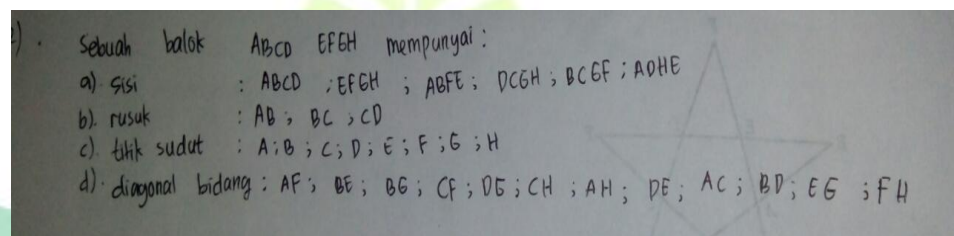 2). Sebuah balok ABCD EFGH mempunyai :
a). sisi : ABCD ; EFGH ; ABFE ; DCGH ; BCGF ; ADHE
b). rusuk : AB ; BC ; CD
c). titik sudut : A ; B ; C ; D ; E ; F ; G ; H
d). diagonal bidang : AF ; BE ; BG ; CF ; DG ; CH ; AH ; DE ; AC ; BD ; EG ; FH